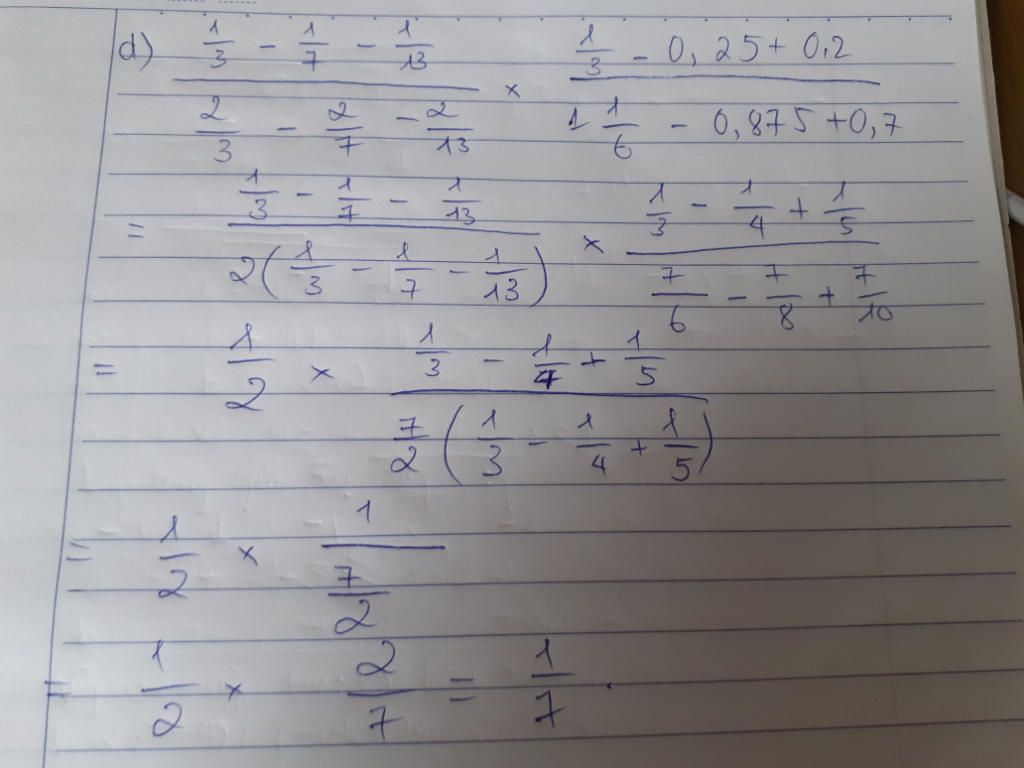 d) 1/3 - 1/7 - 1/13 / 2/3 - 2/7 - 2/13 × 1/3 - 0,25 + 0,2 / 1 1/6 - 0,875 + 0,7
= 1/3 - 1/7 - 1/13 / 2(1/3 - 1/7 - 1/13) × 1/3 - 1/4 + 1/5 / 7/6 - 7/8 + 7/10
= 1/2 × 1/3 - 1/4 + 1/5 / 7/2 (1/3 - 1/4 + 1/5)
= 1/2 × 1 / 7/2
= 1/2 × 2/7 = 1/7 .